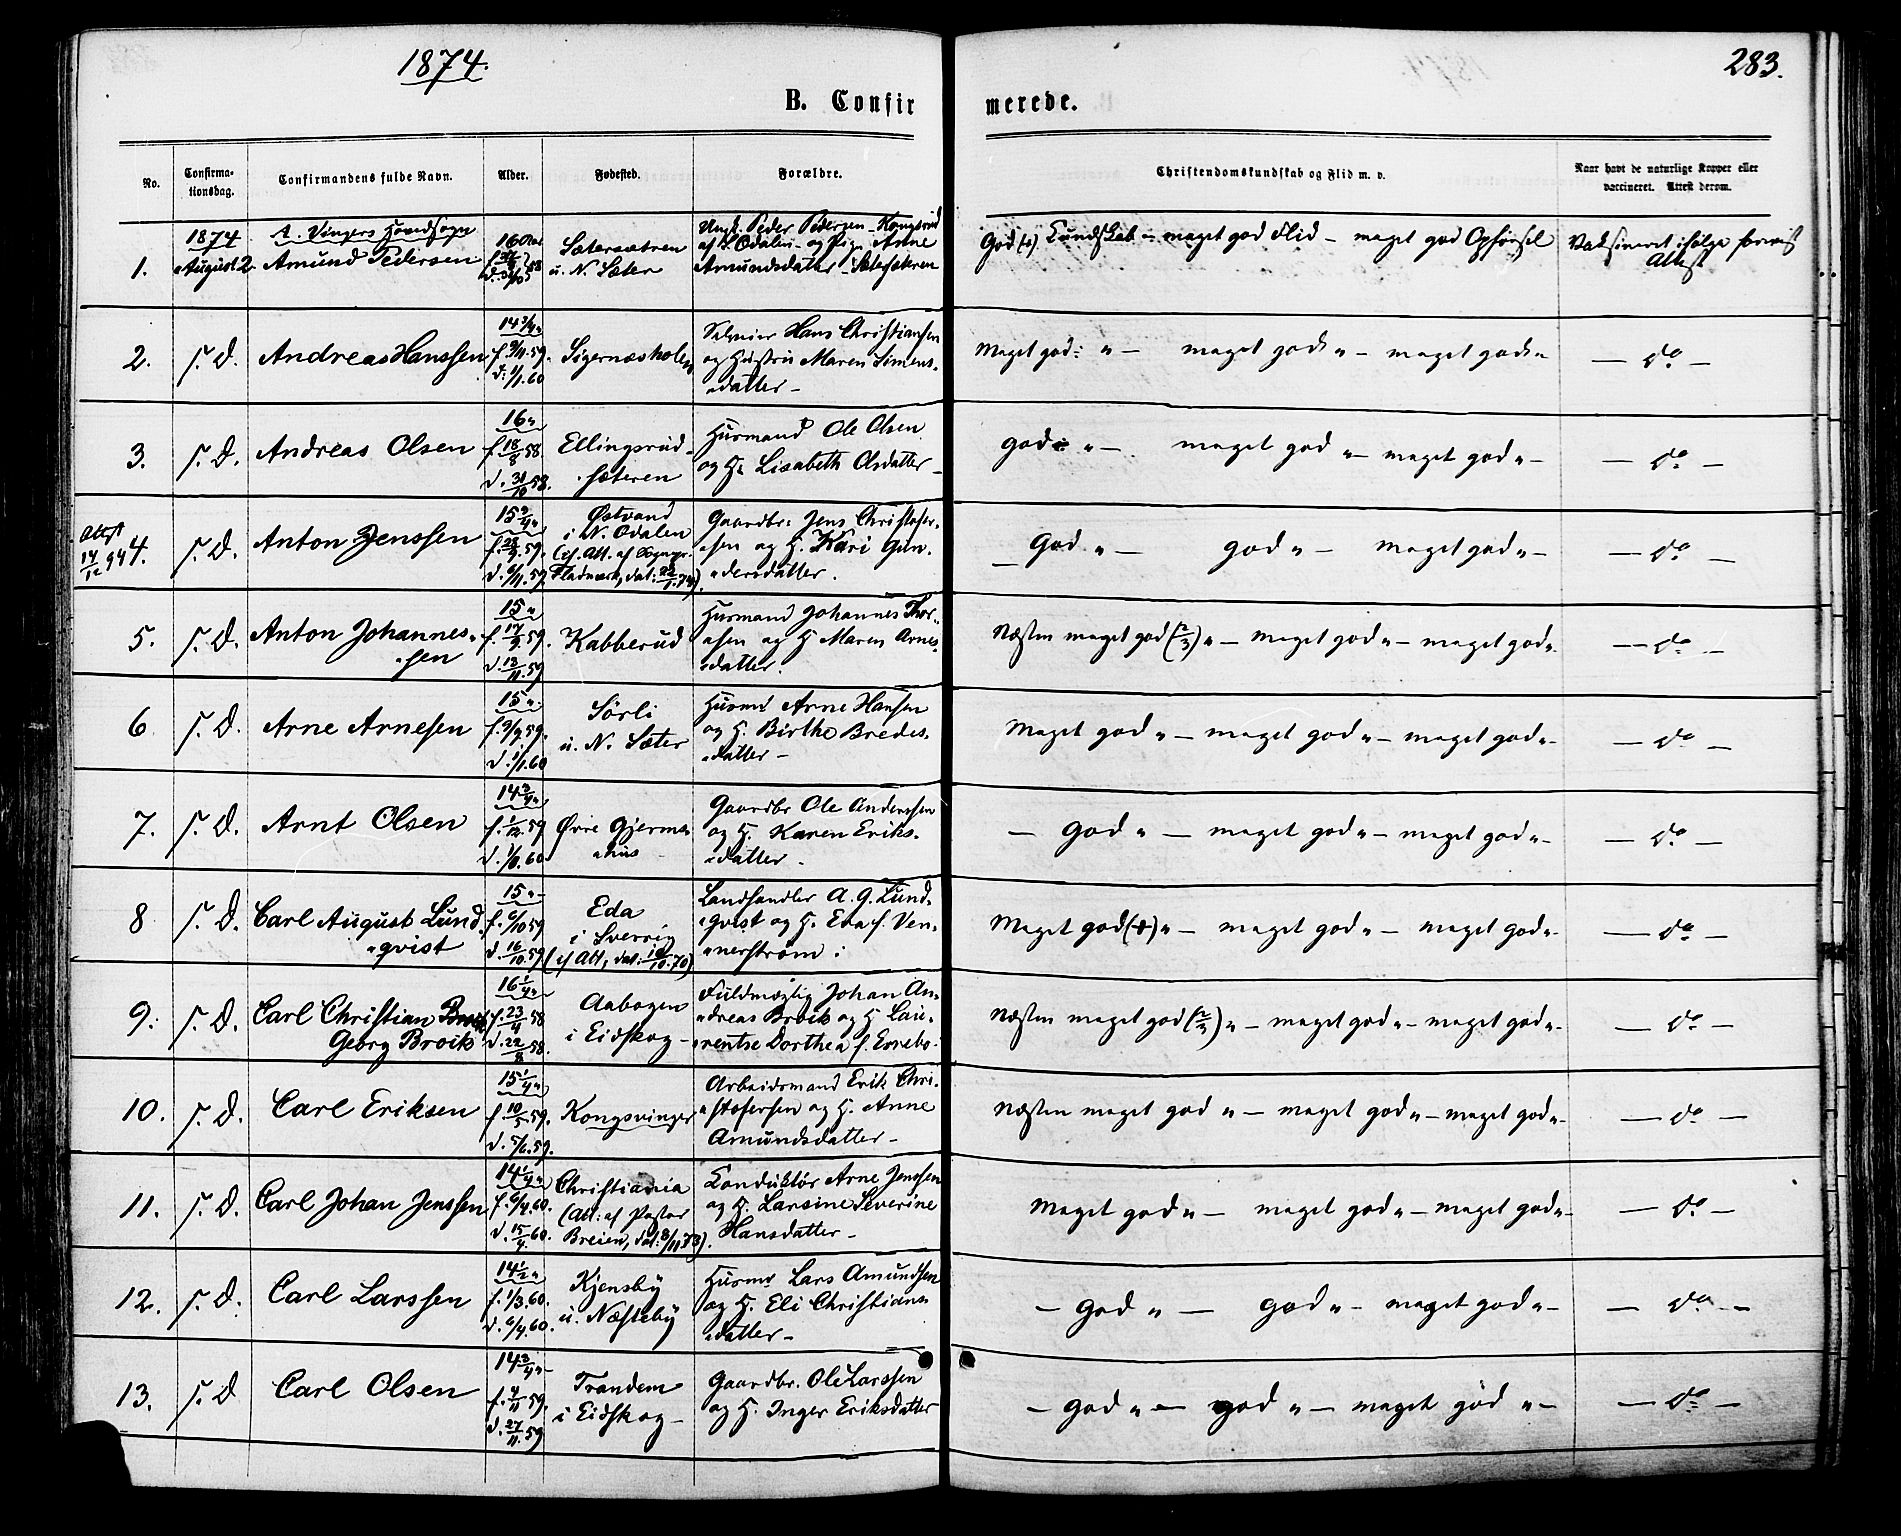 1874.
283.
B. Confirmerede.
No. Confirmationsdag. Confirmandens fulde Navn. Alder. Fødested. Forældre. Christendomskundskab og Flid m. v. Naar havt de naturlige Kopper eller vaccineret. Attest derom.
A. Vingers Hovedsogn
1. 1874 August 2. Amund Pedersen 16 Sætersætren u. N. Sæter Ungk. Peder Pedersen Kongsrud af S. Odalen og Pige Anne Amundsdatter Sætersæteren God (+) Kundskab – maget god Flid – maget god Opførsel Vaksineret ifølge forevist Attest
2. s. D. Andreas Hanssen 14 3/4 " f. 9/11.59. d. 1/1.60 Sigernæsholen Hans Christiansen og Hustru Maren Simens- datter – Maget god " – maget god " – maget god " – do –
3. s. D. Andreas Olsen 16 " f. 18/8 58. d. 31/10 58. Ellingsrud- sæteren Husmand Ole Olsen og H. Lisabeth Olsdatter – god " – maget god " – maget god " – – do –
Attest 14/12 94 4. s. D. Anton Jenssen 15 3/4 " d. 6/11.59. Østvand i N. Odalen (cf. Att. af Sognepr. Fladmark, dat: 22/1.74). Gaardbr: Jens Christofer- sen og H. Kari Gun- dersdatter. – God " – god " – maget god " – – do –
5. s. D. Anton Johannes- sen 15 " f. 17/9.59. d. 13/11.59 Kabberud Husmand Johannes Thor- sen og H Maren Arnes- datter. Næsten maget god (2/3) " – maget god " – maget god " – do –
6 s. D. Arne Arnesen 15 " d. 1/1.60 Sørli u. N. Sæter Husmd Arne Hansen og H. Birthe Bredes- datter – Maget god " – maget god " – maget god " – – do –
7. s. D. Arnt Olsen 14 3/4 " f. 1/12.59 Øvre Gjerms- hus Gaardbr Ole Anderssen og H. Karen Eriks- datter – – God " – maget god " – maget god " – – do –
8 s. D. Carl August Lund- qvist 15 " f. 6/10 59 d. 16/10.59 Eda i Sverrig (cf Att, dat: 10/10.70) Landhandler A. G. Lund- qvist og H. Eva f. Ven- nerstrøm : Maget god (+) " – maget god " – maget god " – – do –
9. s. D. Carl Christian Georg Broik 16 1/4 " f. 23/4 58 d. 22/8 58. Aabogen i Eidskog – Fuldmægtig Johan An- dreas Broik og H Lau- rentse Dorthea f. Evrebo. Næsten maget god (2/3) " – maget god " – maget god " – – do –
10. s. D. Carl Eriksen 15 1/4 " f. 10/5.59. d. 5/6.59. Kongsvinger Arbeidsmand Erik Chri- stofersen og H. Anne Amundsdatter – Næsten maget god " – maget god " – maget god " – – do –
11. s. D. Carl Johan Jenssen 14 1/4 " f. 6/4.60. d. 15/4.60. Christiania (Att: af Pastor Breien, dat: 8/11 73). Konduktør Arne Jenssen og H. Larsine Severine Hansdatter – Maget god " – maget god " – maget god " – – do –
12. s. D. Carl Larssen 14 1/2 " f. 1/3.60. d. 6/4.60. Kjensby u. Næsteby Husmd Lars Amundsen og H. Eli Christians- datter – – God " – god " – maget god " – – do –
13. s. D Carl Olsen 14 3/4 " – f. 4/11.59. d. 27/11.59 Trandem i Eidskog – Gaardbr. Ole Larssen og H. Inger Eriksdatter – God " – god " – maget god " – – do –